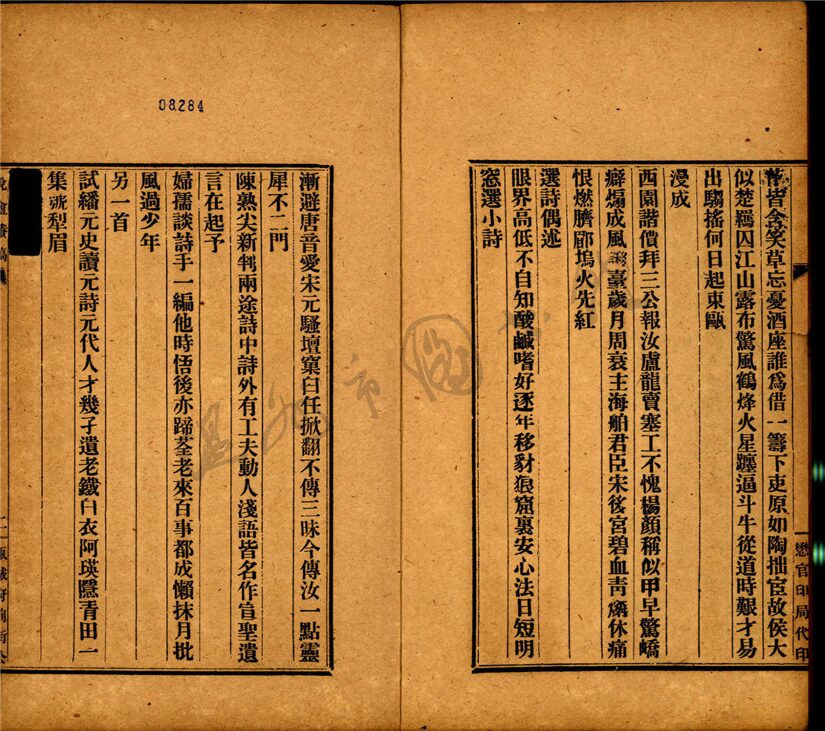 皆含笑草忘憂酒座誰為借一籌下吏原如陶拙宦故侯大
似楚羈囚江山露布驚風鶴烽火星躔逼斗牛從道時艱才易
出騶搖何日起東甌
漫成
西園諧價拜三公報汝盧龍賣塞工不愧楊顏稱似甲早驚嶠
癖煽成風臺歲月周衰主海舶君臣宋後宮碧血靑燐休痛
恨燃臍郿塢火先紅
選詩偶述
眼界高低不自知酸鹹嗜好逐年移豺狼窟裏安心法日短明
窓選小詩
懋官印局代印
08284
漸避唐音愛宋元騷壇窠臼任掀翻不傳三昧今傳汝一點靈
犀不二門
陳熟尖新判兩途詩中詩外有工夫動人淺語皆名作宣聖遺
言在起予
婦孺談詩手一編他時悟後亦蹄荃老來百事都成懶抹月批
風過少年
另一首
試繙元史讀元詩元代人才幾孑遺老鐵白衣阿瑛隱青田一
集號犂眉